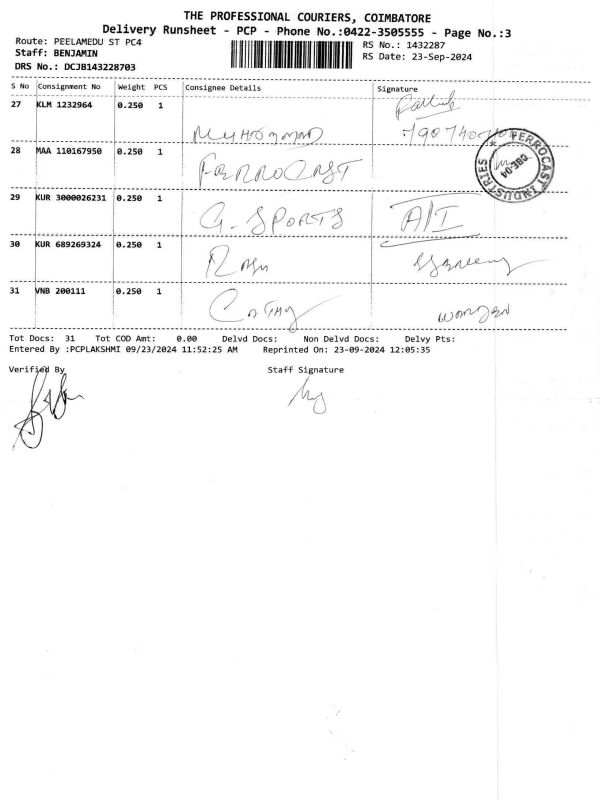 THE PROFESSIONAL COURIERS, COIMBATORE
Delivery Runsheet - PCP - Phone No.:0422-3505555 - Page No.:3
Route: PEELAMEDU ST PC4
RS No.: 1432287
Staff: BENJAMIN
RS Date: 23-Sep-2024
DRS No.: DCJB143228703
S No Consignment No Weight PCS Consignee Details Signature
27 KLM 1232964 0.250 1
28 MAA 110167950 0.250 1 FERROCAST
FERROCAST INDUSTRIES
CBE-04
29 KUR 3000026231 0.250 1 G. SPORTS
30 KUR 689269324 0.250 1 RAJU
31 VNB 200111 0.250 1
Tot Docs: 31 Tot COD Amt: 0.00 Delvd Docs: Non Delvd Docs: Delvy Pts:
Entered By :PCPLAKSHMI 09/23/2024 11:52:25 AM Reprinted On: 23-09-2024 12:05:35
Verified By Staff Signature